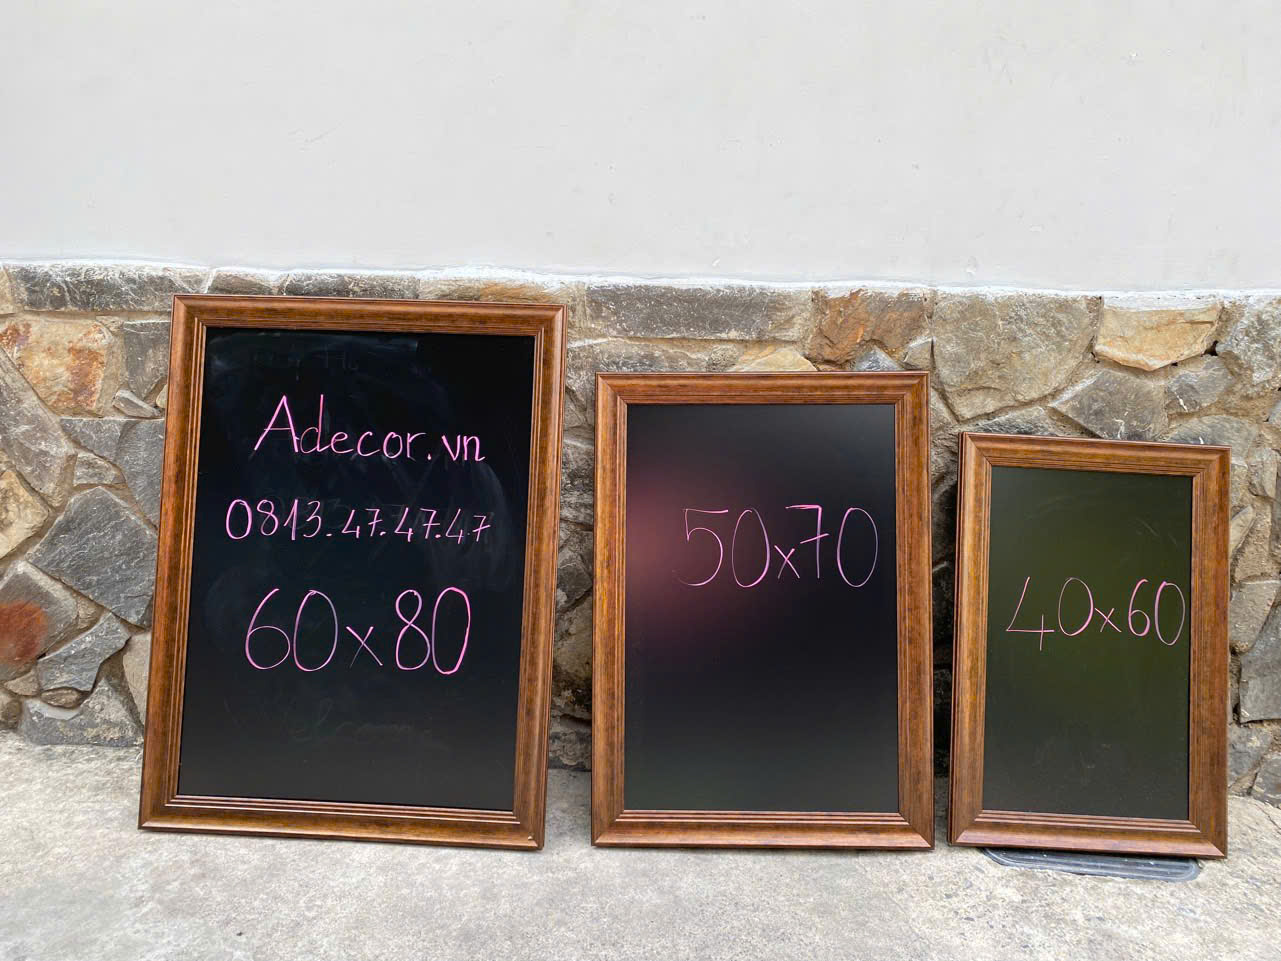 Adecor.vn
0813.47.47.47
60x80
50x70
40x60